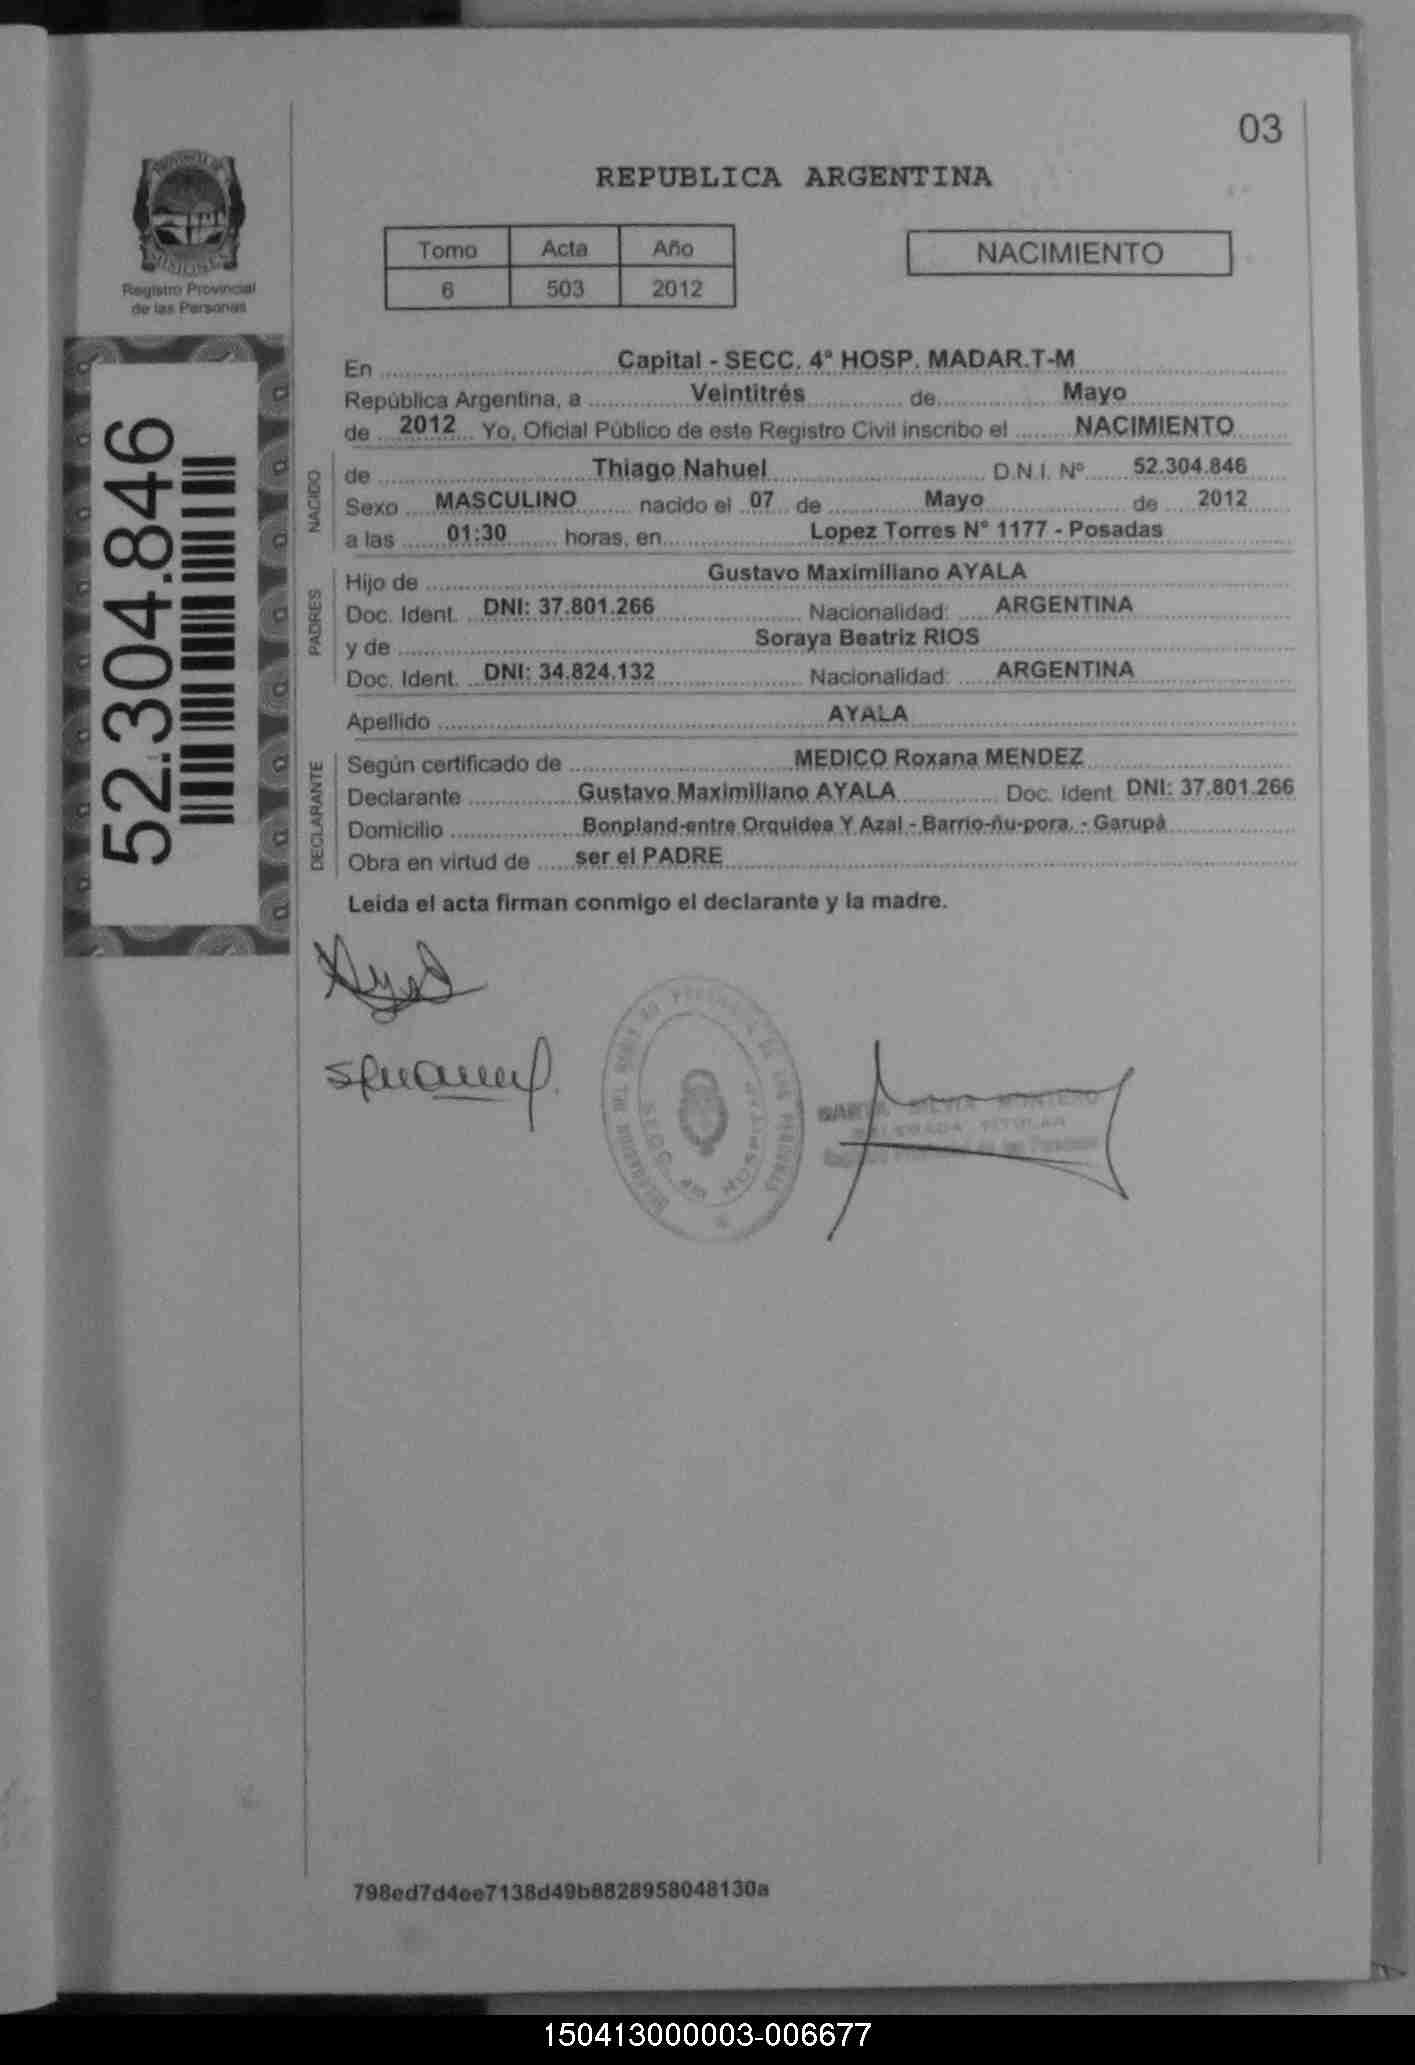 03
PROVINCIA DE
MISIONES
Registro Provincial
de las Personas
REPUBLICA ARGENTINA
Tomo Acta Año
6 503 2012
NACIMIENTO
52.304.846
En Capital - SECC. 4° HOSP. MADAR.T-M
República Argentina, a Veintitrés de Mayo
de 2012 Yo, Oficial Público de este Registro Civil inscribo el NACIMIENTO
NACIDO
de Thiago Nahuel D.N.I. Nº 52.304.846
Sexo MASCULINO nacido el 07 de Mayo de 2012
a las 01:30 horas, en Lopez Torres N° 1177 - Posadas
PADRES
Hijo de Gustavo Maximiliano AYALA
Doc. Ident. DNI: 37.801.266 Nacionalidad: ARGENTINA
y de Soraya Beatriz RIOS
Doc. Ident. DNI: 34.824.132 Nacionalidad: ARGENTINA
Apellido AYALA
DECLARANTE
Según certificado de MEDICO Roxana MENDEZ
Declarante Gustavo Maximiliano AYALA Doc. Ident. DNI: 37.801.266
Domicilio Bonpland-entre Orquidea Y Azal - Barrio-ñu-pora. - Garupá
Obra en virtud de ser el PADRE
Leida el acta firman conmigo el declarante y la madre.
SILVIA MONTERO
TITULAR
de las Personas
SECC. 4ta HOSPITAL
798ed7d4ee7138d49b8828958048130a
150413000003-006677